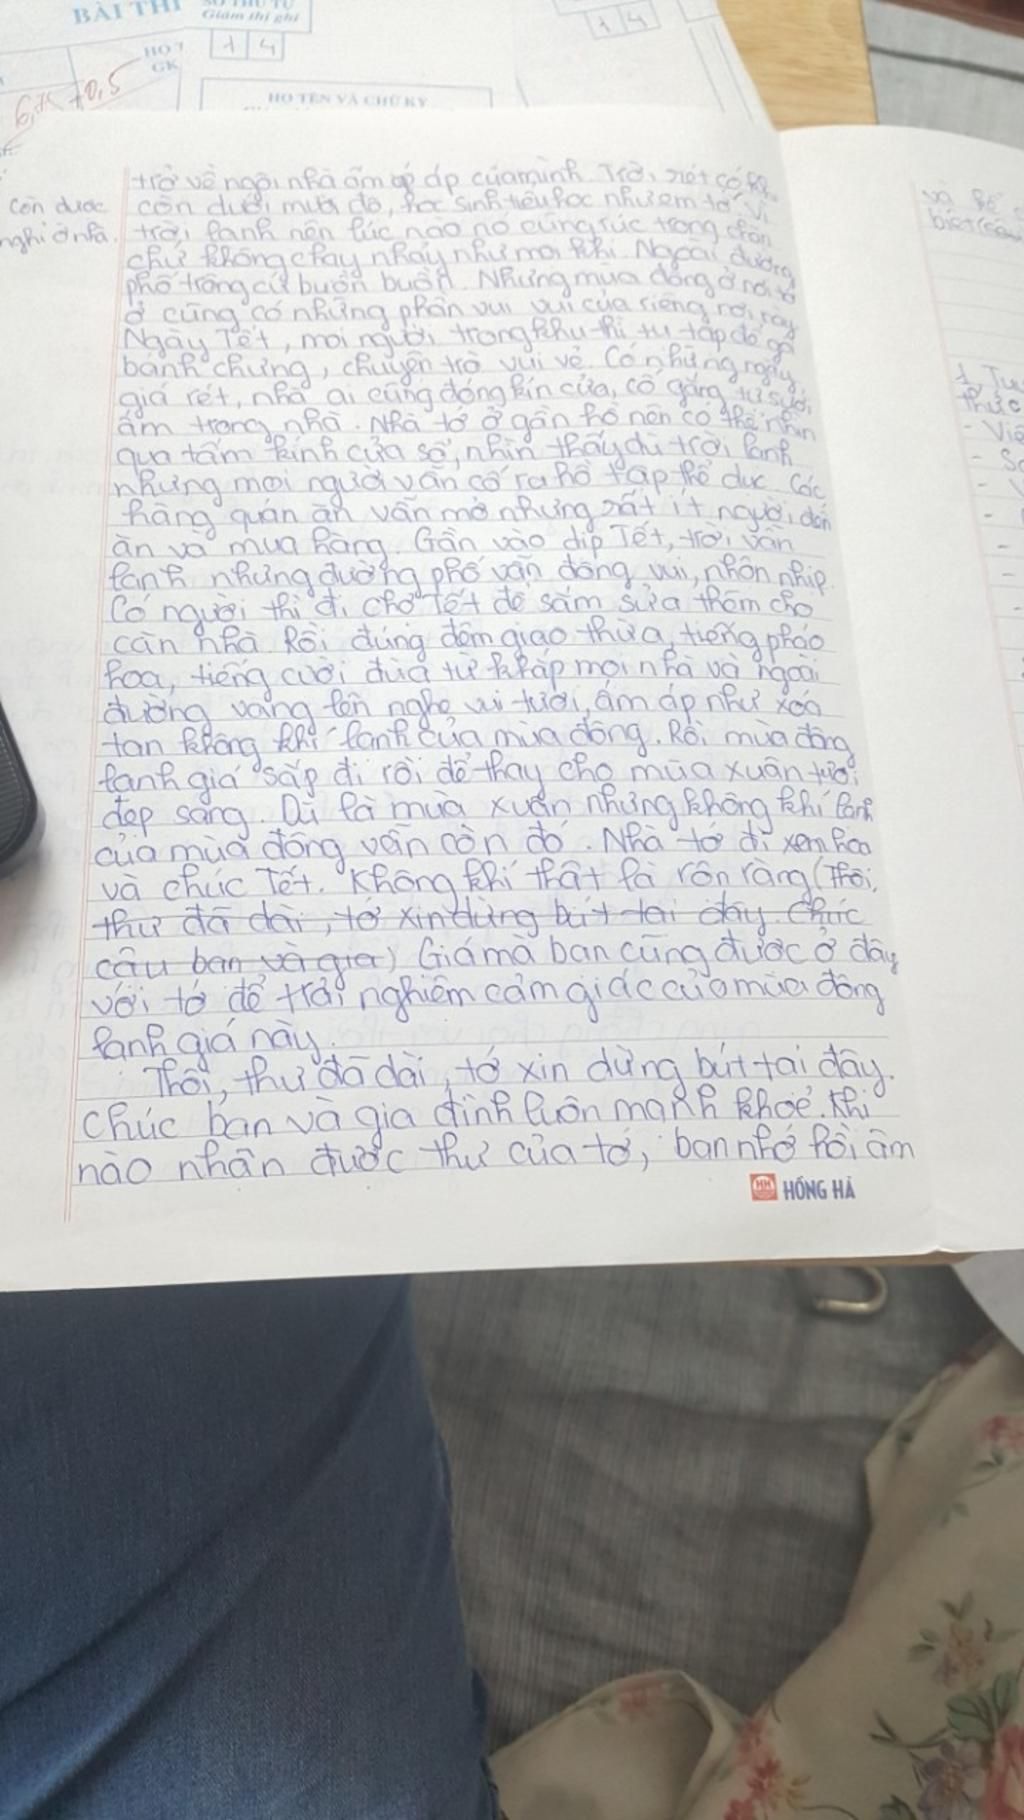 BÀI THI
Giám thị ghi
1 4
1 4
HỌ TÊN VÀ CHỮ KÝ
GK
+0,5
trở về ngôi nhà ấm áp của mình. Trời rét có
còn được
nghỉ ở nhà.
còn dưới mưa đó, học sinh tiểu học như em tớ vì
trời lanh nên lúc nào nó cũng rúc trong chăn
chứ không chạy nhảy như mọi khi. Ngoài đường
phố trông cứ buồn buồn. Nhưng mùa đông ở nơi tớ
ở cũng có những phần vui vui của riêng nơi này
Ngày Tết, mọi người trong khu thì tụ tập để gói
bánh chưng, chuyện trò vui vẻ. Có những ngày
giá rét, nhà ai cũng đóng kín cửa, cố gắng tự sưởi
ấm trong nhà. Nhà tớ ở gần hồ nên có thể nhìn
qua tấm kính cửa sổ, nhìn thấy dù trời lanh
nhưng mọi người vẫn cố ra hồ tập thể dục. Các
hàng quán ăn vẫn mở nhưng rất ít người đến
ăn và mua hàng. Gần vào dịp Tết, trời vẫn
lanh nhưng đường phố vẫn đông vui, nhộn nhịp.
Có người thì đi chợ Tết để sắm sửa thêm cho
căn nhà. Rồi đúng đêm giao thừa, tiếng pháo
hoa, tiếng cười đùa từ khắp mọi nhà và ngoài
đường vang lên nghe vui tươi, ấm áp như xóa
tan không khí lanh của mùa đông. Rồi mùa đông
lanh giá sắp đi rồi để thay cho mùa xuân tươi
đẹp sang. Dù là mùa xuân nhưng không khí lanh
của mùa đông vẫn còn đó. Nhà tớ đi xem hoa
và chúc Tết. Không khí thật là rôn ràng (Thôi,
thư đã dài, tớ xin dừng bút tại đây. Chúc
cậu bạn và gia) Giá mà bạn cũng được ở đây
với tớ để trải nghiệm cảm giác của mùa đông
lanh giá này.
Thôi, thư đã dài, tớ xin dừng bút tại đây.
Chúc bạn và gia đình luôn mạnh khoẻ. Khi
nào nhận được thư của tớ, bạn nhớ hồi âm
HH HỒNG HÀ
và kể
1. Tự
thức
- Việ